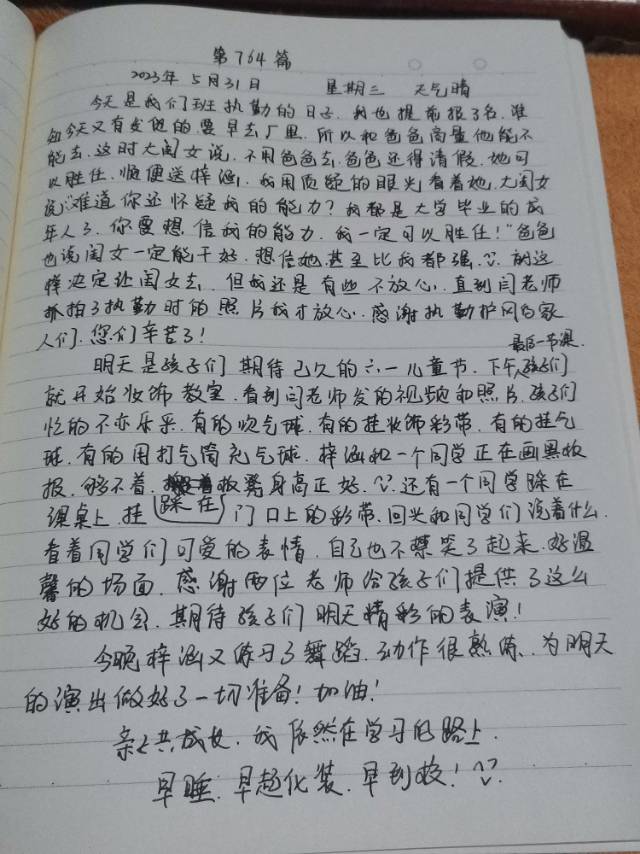 第764篇
2023年5月31日 星期三 天气晴
今天是我们班执勤的日子,我也提前报了名,谁
知今天又有发货的要早去厂里,所以和爸爸商量他能不
能去,这时大闺女说,不用爸爸去,爸爸还得请假,她可
以胜任,顺便送梓涵,我用质疑的眼光看着她,大闺女
说:“难道你还怀疑我的能力?我都是大学毕业的成
年人了,你要想信我的能力,我一定可以胜任!”爸爸
也说闺女一定能干好,想信她,甚至比我都强,就这
样决定让闺女去,但我还是有些不放心,直到闫老师
抓拍了执勤时的照片我才放心,感谢执勤护网的家
人们,您们辛苦了!
最后一节课
明天是孩子们期待已久的六一儿童节,下午孩子们
就开始妆饰教室,看到闫老师发的视频和照片,孩子们
忙的不亦乐乎,有的吹气球,有的挂妆饰彩带,有的挂气
球,有的用打气筒充气球,梓涵和一个同学正在画黑板
报,够不着,板凳身高正好,还有一个同学踩在
课桌上,挂踩在门口上的彩带,回头和同学们说着什么,
看着同学们可爱的表情,自己也不禁笑了起来,好温
馨的场面,感谢两位老师给孩子们提供了这么
好的机会,期待孩子们明天精彩的表演!
今晚梓涵又练习了舞蹈,动作很熟练,为明天
的演出做好了一切准备!加油!
亲子共成长,我依然在学习的路上,
早睡,早起化装,早到校!